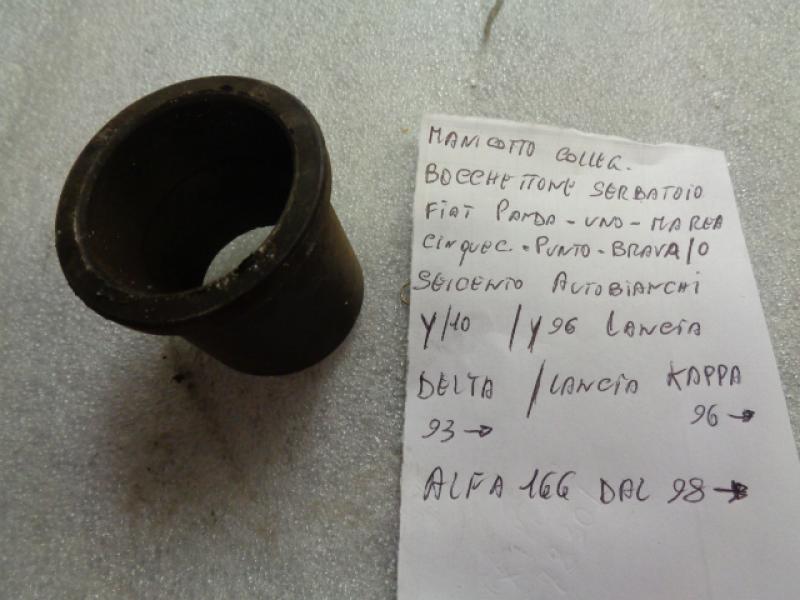 MANICOTTO COLLEG.
BOCCHETTONE SERBATOIO
FIAT PANDA - UNO - MAREA
CINQUEC. - PUNTO - BRAVA/O
SEICENTO AUTOBIANCHI
Y/10 / Y 96 LANCIA
DELTA / LANCIA KAPPA
93 → 96 →
ALFA 166 DAL 98 →